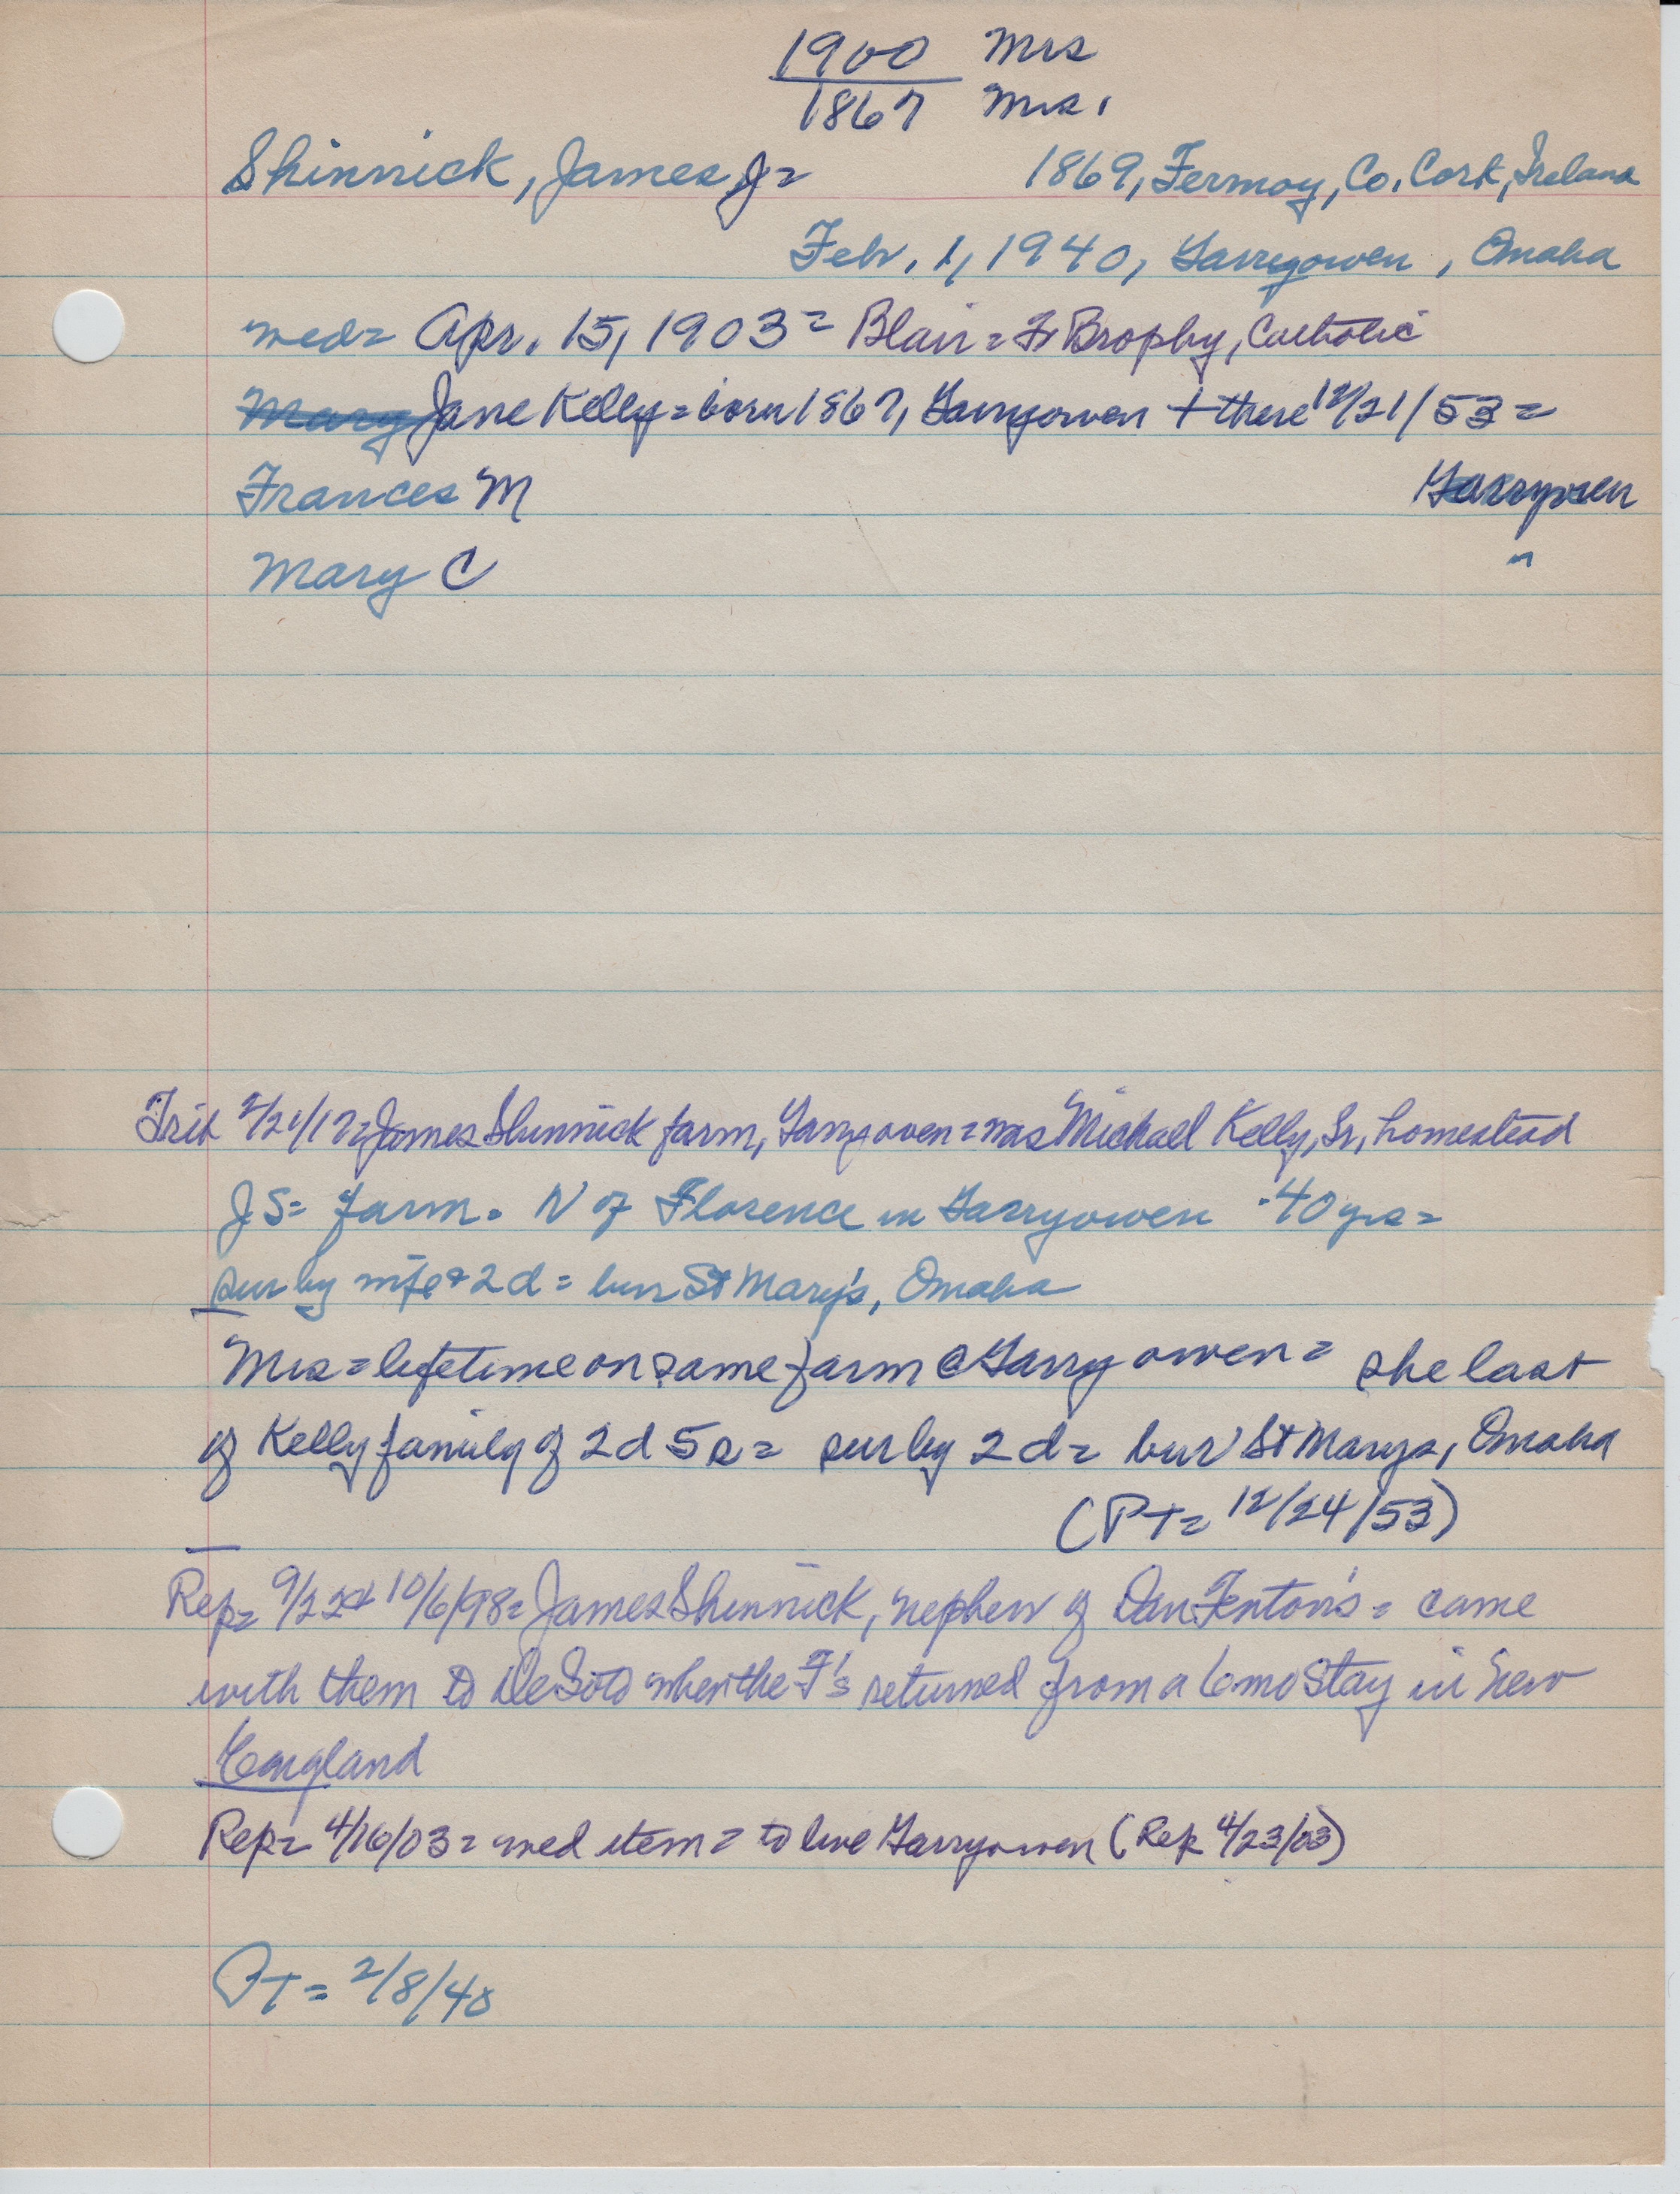 1900 Mrs
1867 Mrs.
Shinnick, James J= 1869, Fermoy, Co. Cork, Ireland
Feb. 1, 1940, Garryowen, Omaha
wed= Apr. 15, 1903= Blair= Fr Brophy, Catholic
Mary Jane Kelly= born 1867, Garryowen + there 12/21/53=
Frances M Garryowen
Mary C "
Trib 2/21/17= James Shinnick farm, Garryowen= was Michael Kelly, Sr, homestead
JS= farm. N of Florence in Garryowen 40 yrs=
sur by wife + 2 d= bur St Mary's, Omaha
Mrs= lifetime on same farm @ Garryowen= she last
of Kelly family of 2 d 5 s= sur by 2 d= bur St Marys, Omaha
(PT= 12/24/53)
Rep= 9/22 + 10/6/98= James Shinnick, nephew of Dan Fenton's= came
with them to DeSoto when the F's returned from a 6 mo stay in New
England
Rep= 4/16/03= wed item= to live Garryowen (Rep 4/23/03)
PT= 2/8/40